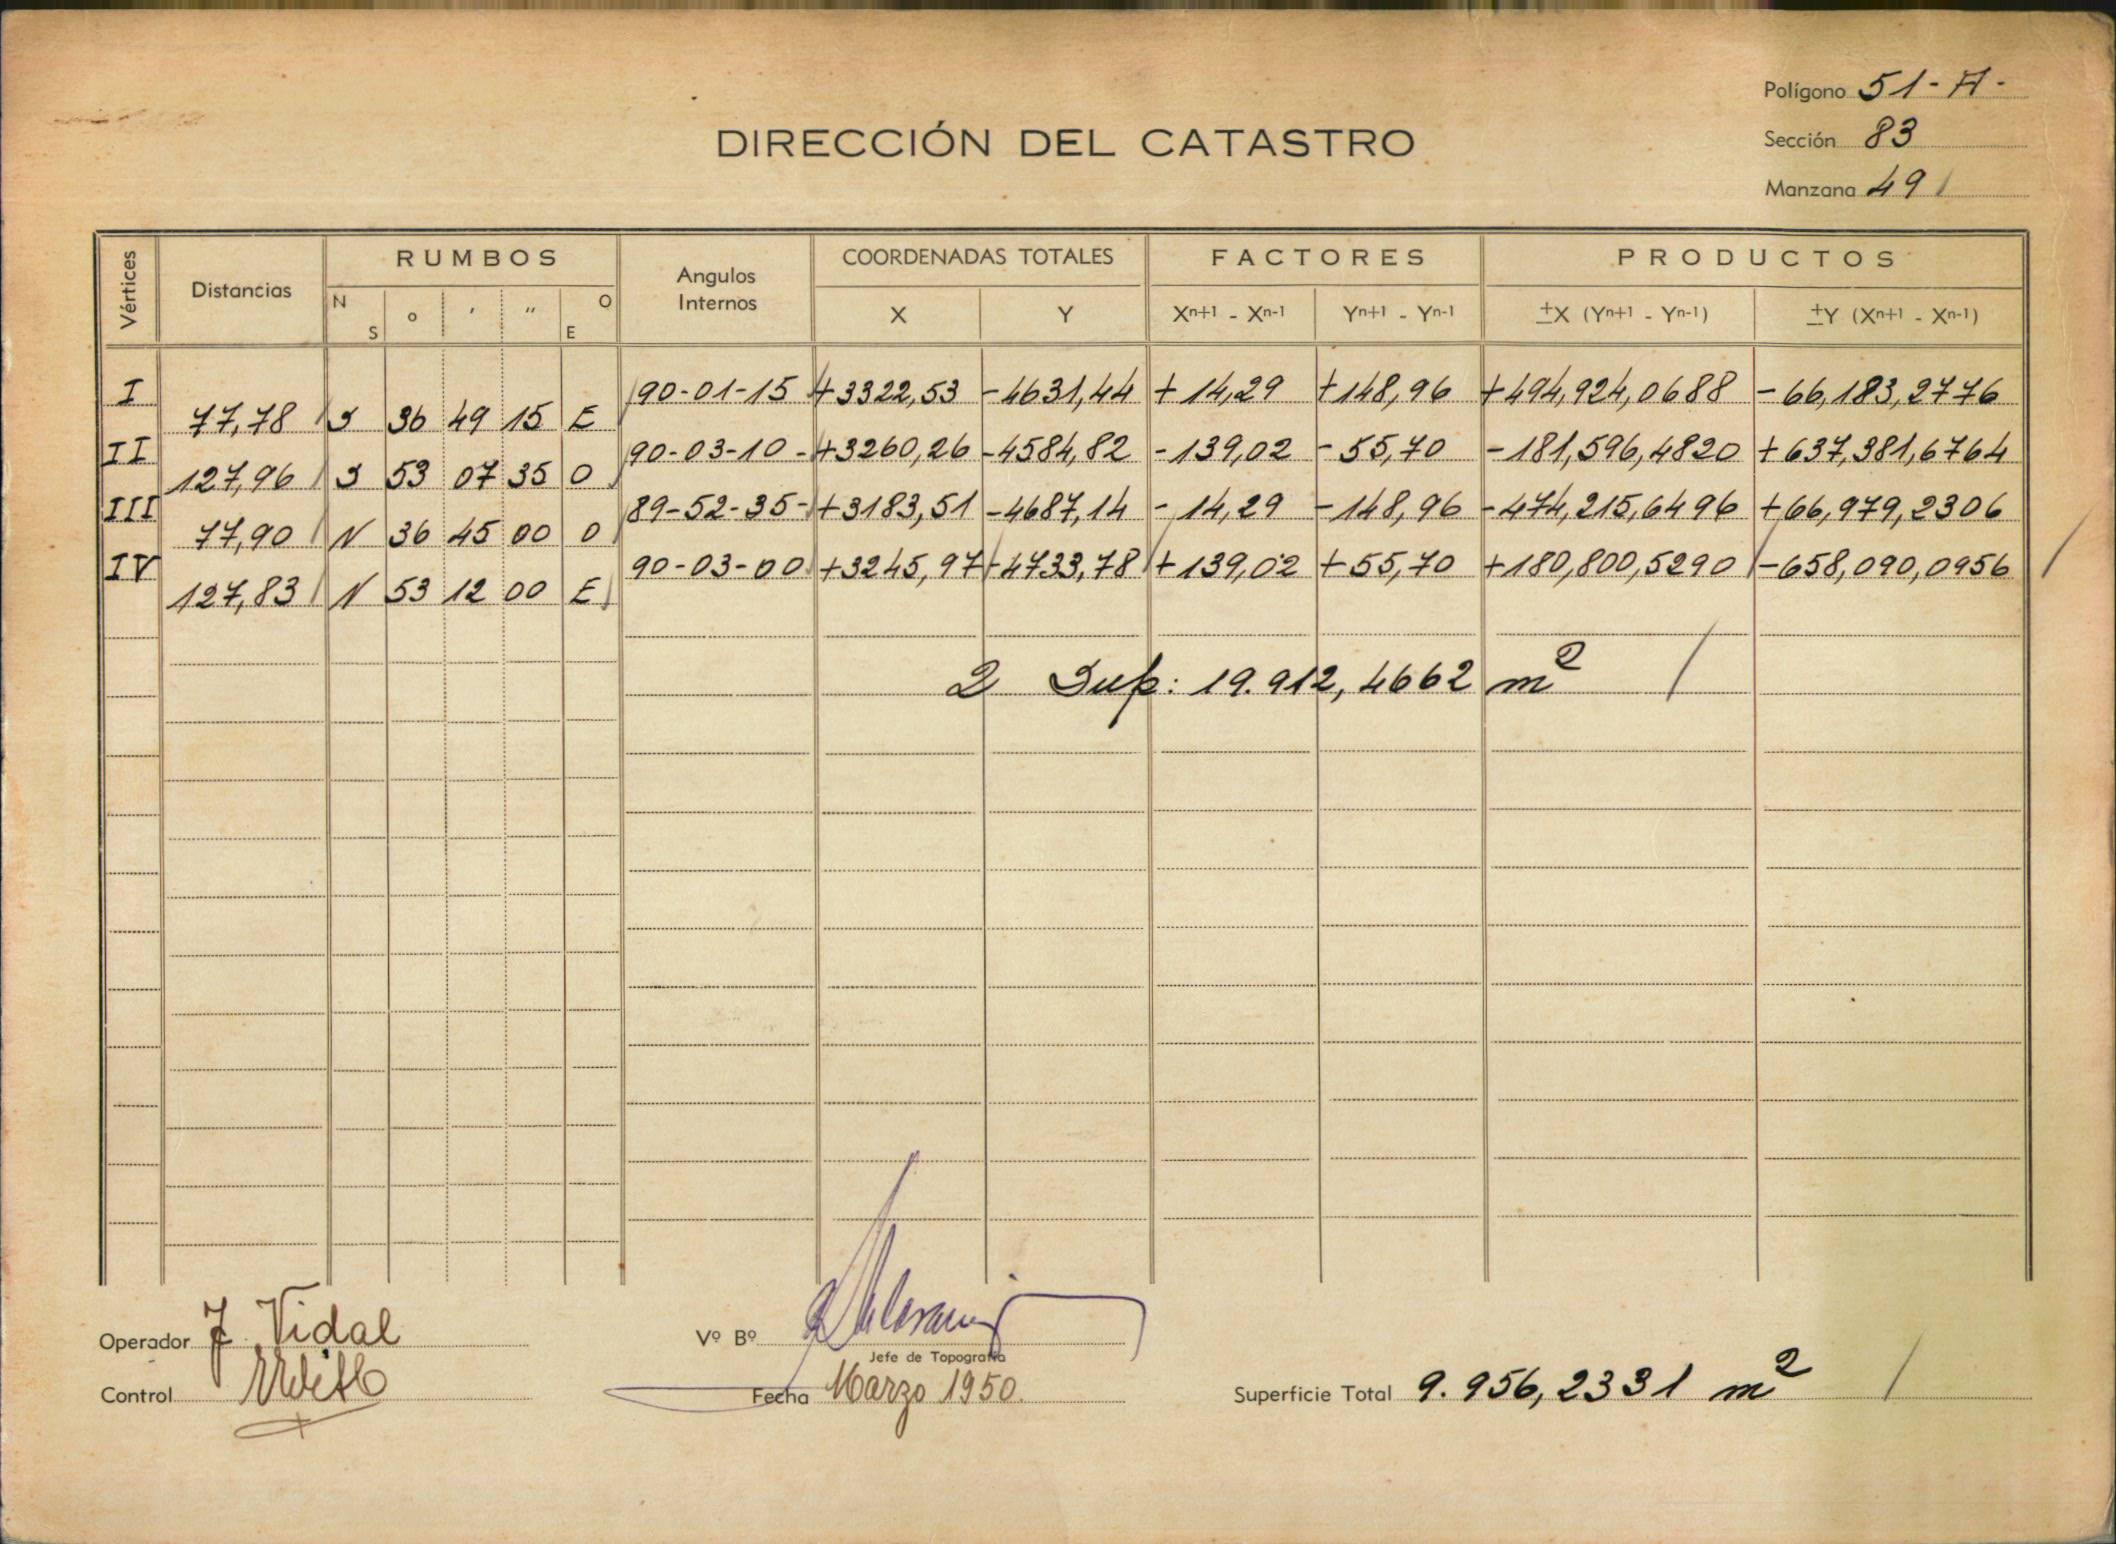 Polígono 51-A-
DIRECCIÓN DEL CATASTRO
Sección 83
Manzana 49
Vértices Distancias RUMBOS Angulos Internos COORDENADAS TOTALES FACTORES PRODUCTOS
N S o ' " O E X Y Xn+1 - Xn-1 Yn+1 - Yn-1 ±X (Yn+1 - Yn-1) ±Y (Xn+1 - Xn-1)
I 90-01-15 +3322,53 -4631,44 +14,29 +148,96 +494,924,0688 -66,183,2776
77,78 S 36 49 15 E
II 90-03-10- +3260,26 -4584,82 -139,02 -55,70 -181,596,4820 +637,381,6764
127,96 S 53 07 35 O
III 89-52-35- +3183,51 -4687,14 -14,29 -148,96 -474,215,6496 +66,979,2306
77,90 N 36 45 00 O
IV 90-03-00 +3245,97 -4733,78 +139,02 +55,70 +180,800,5290 -658,090,0956
127,83 N 53 12 00 E
2 Sup: 19.912,4662 m²
Operador J. Vidal
Vº Bº
Jefe de Topografía
Control
Fecha Marzo 1950.
Superficie Total 9.956,2331 m²